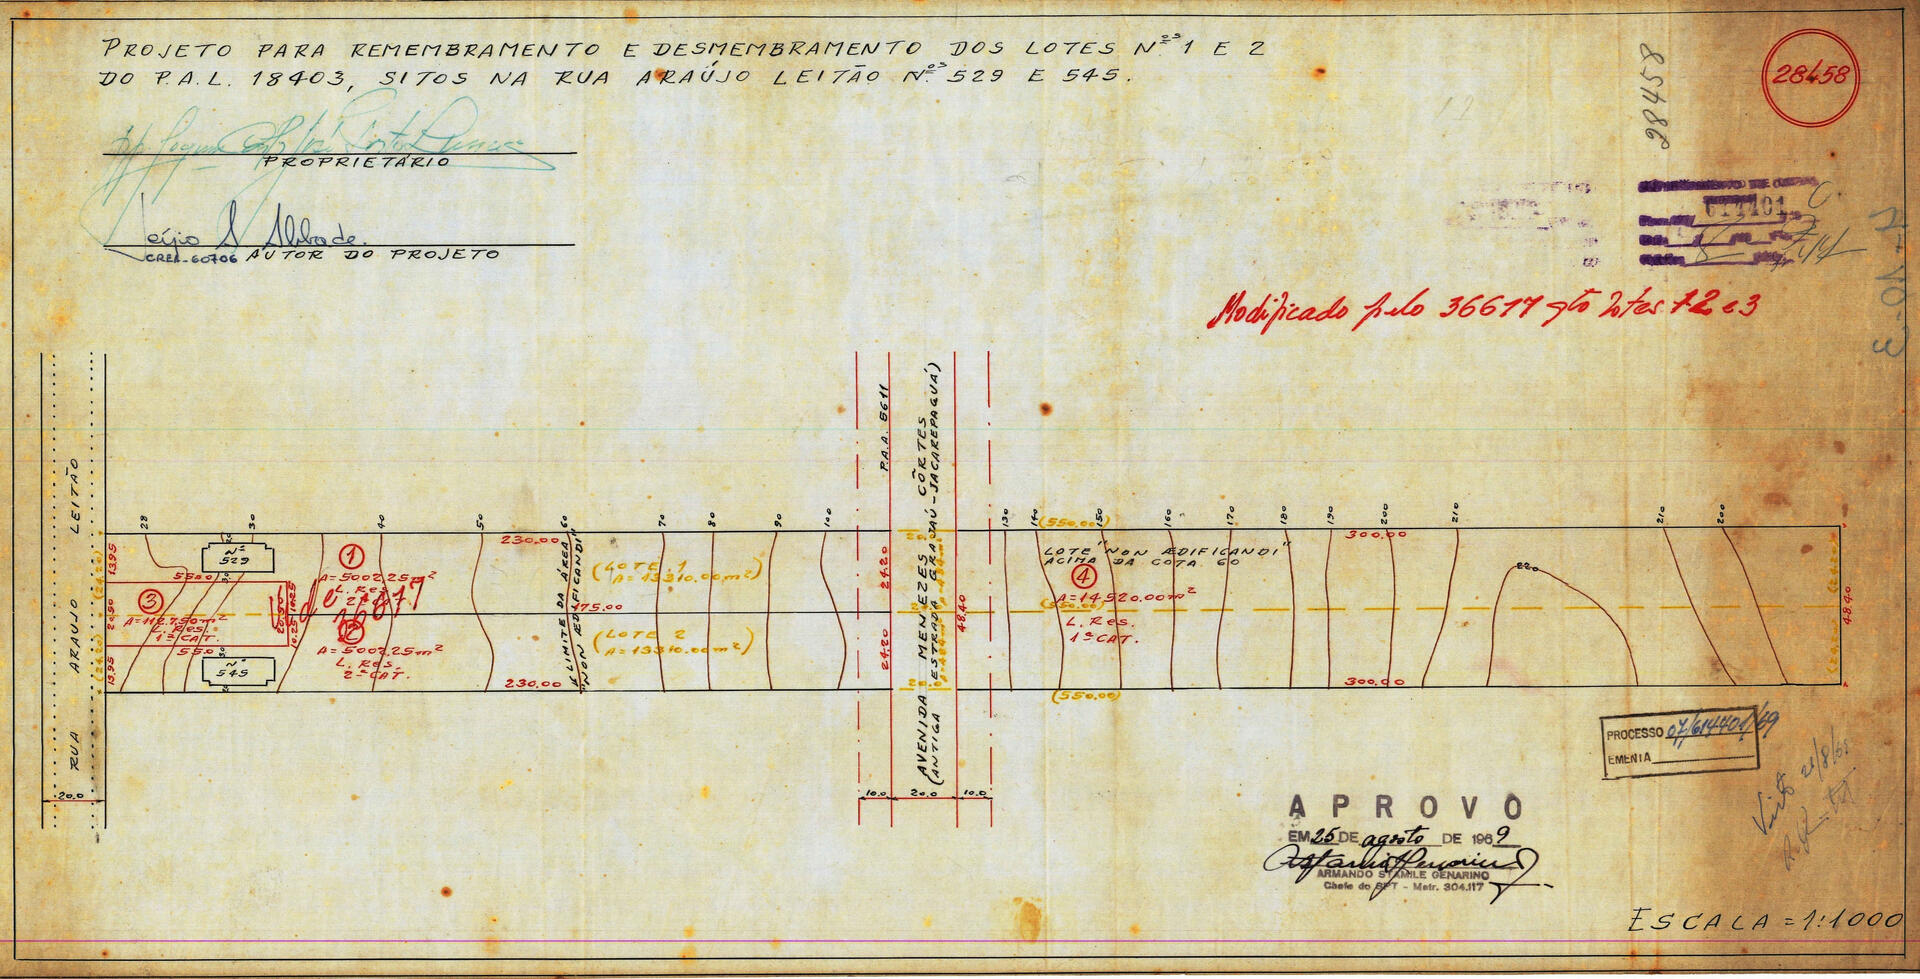 PROJETO PARA REMEMBRAMENTO E DESMEMBRAMENTO DOS LOTES Nºs 1 E 2
DO P.A.L. 18403, SITOS NA RUA ARAÚJO LEITÃO Nºs 529 E 545.
28458
28458
PROPRIETÁRIO
CREA-60706 AUTOR DO PROJETO
Modificado pelo 36617 qto lotes 1-2 e 3
RUA ARAUJO LEITÃO
20.0
P.A.A. 5611
AVENIDA MENEZES CÔRTES
(ANTIGA ESTRADA GRAJAÚ-JACAREPAGUÁ)
10.0
20.0
10.0
28
30
40
50
60
70
80
90
100
130
140
150
160
170
180
190
200
210
210
200
220
230.00
(550.00)
300.00
13.95
20.50
13.95
(24.20)
(24.20)
Nº
529
55.00
1
A=5002.25m²
L. Res.
2ª CAT.
3
L. Res.
1ª CAT.
55.0
20.50
10.25
10.25
2
A=5002.25m²
L. Res.
2ª CAT.
Nº
545
LIMITE DA ÁREA
"NON ÆDIFICANDI"
(LOTE 1
A=13310.00m²)
175.00
(LOTE 2
A=13310.00m²)
230.00
24.20
24.20
48.40
LOTE "NON ÆDIFICANDI"
ACIMA DA COTA 60
4
A=14520.00m²
(550.00)
L. Res.
1ª CAT.
300.00
(550.00)
48.40
(24.20)
(24.20)
PROCESSO 07/614401/69
EMENTA
Visto 21/8/69
APROVO
EM 25 DE agosto DE 1969
ARMANDO STAMILE GENARINO
Chefe do SPT - Matr. 304.117
ESCALA = 1:1000